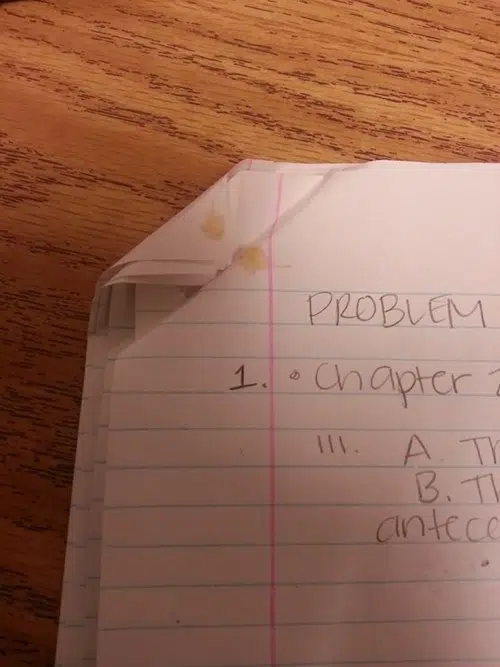 PROBLEM
1. • Chapter 2
III. A. Th
B. Th
antece